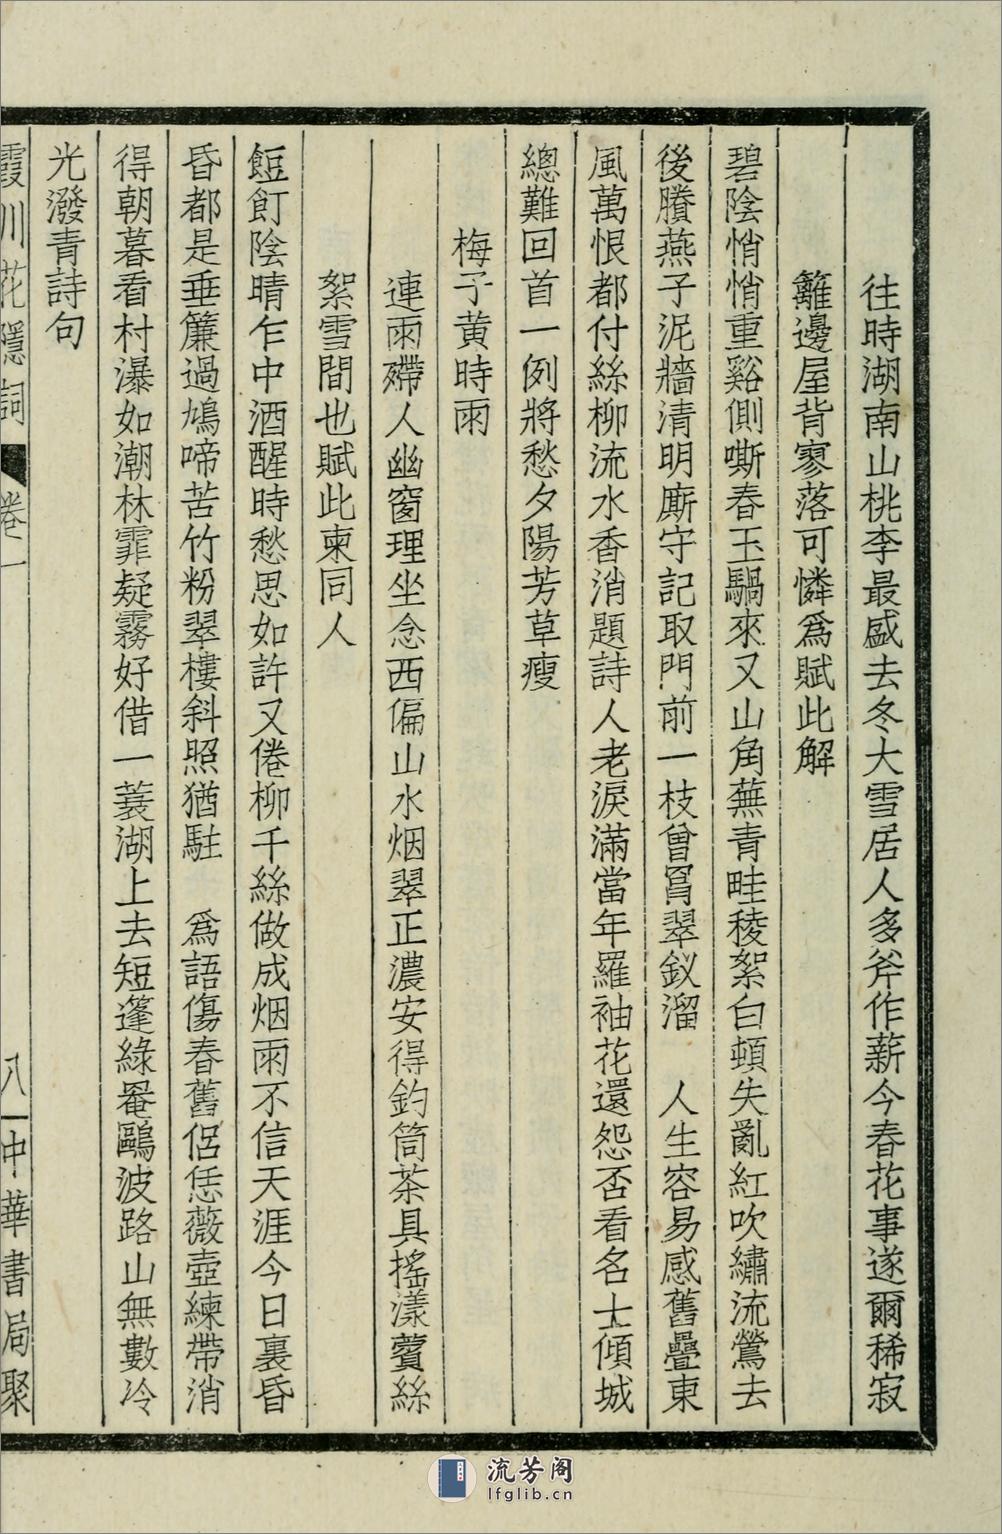 往時湖南山桃李最盛去冬大雪居人多斧作薪今春花事遂爾稀寂
籬邊屋背寥落可憐爲賦此解
碧陰悄悄重谿側嘶春玉騧來又山角蕪青畦稜絮白頓失亂紅吹繡流鶯去
後賸燕子泥牆清明廝守記取門前一枝曾罥翠釵溜　人生容易感舊疊東
風萬恨都付絲柳流水香消題詩人老淚滿當年羅袖花還怨否看名士傾城
總難回首一例將愁夕陽芳草瘦
梅子黃時雨
連雨殢人幽窗理坐念西偏山水烟翠正濃安得釣筒茶具搖漾藚絲
絮雪間也賦此柬同人
餖飣陰晴乍中酒醒時愁思如許又倦柳千絲做成烟雨不信天涯今日裏昏
昏都是垂簾過鳩啼苦竹粉翠樓斜照猶駐　爲語傷春舊侶恁薇壺練帶消
得朝暮看村瀑如潮林霏疑霧好借一蓑湖上去短篷綠罨鷗波路山無數冷
光潑青詩句
霞川花隱詞　卷一　八　中華書局聚
流芳阁
lfglib.cn